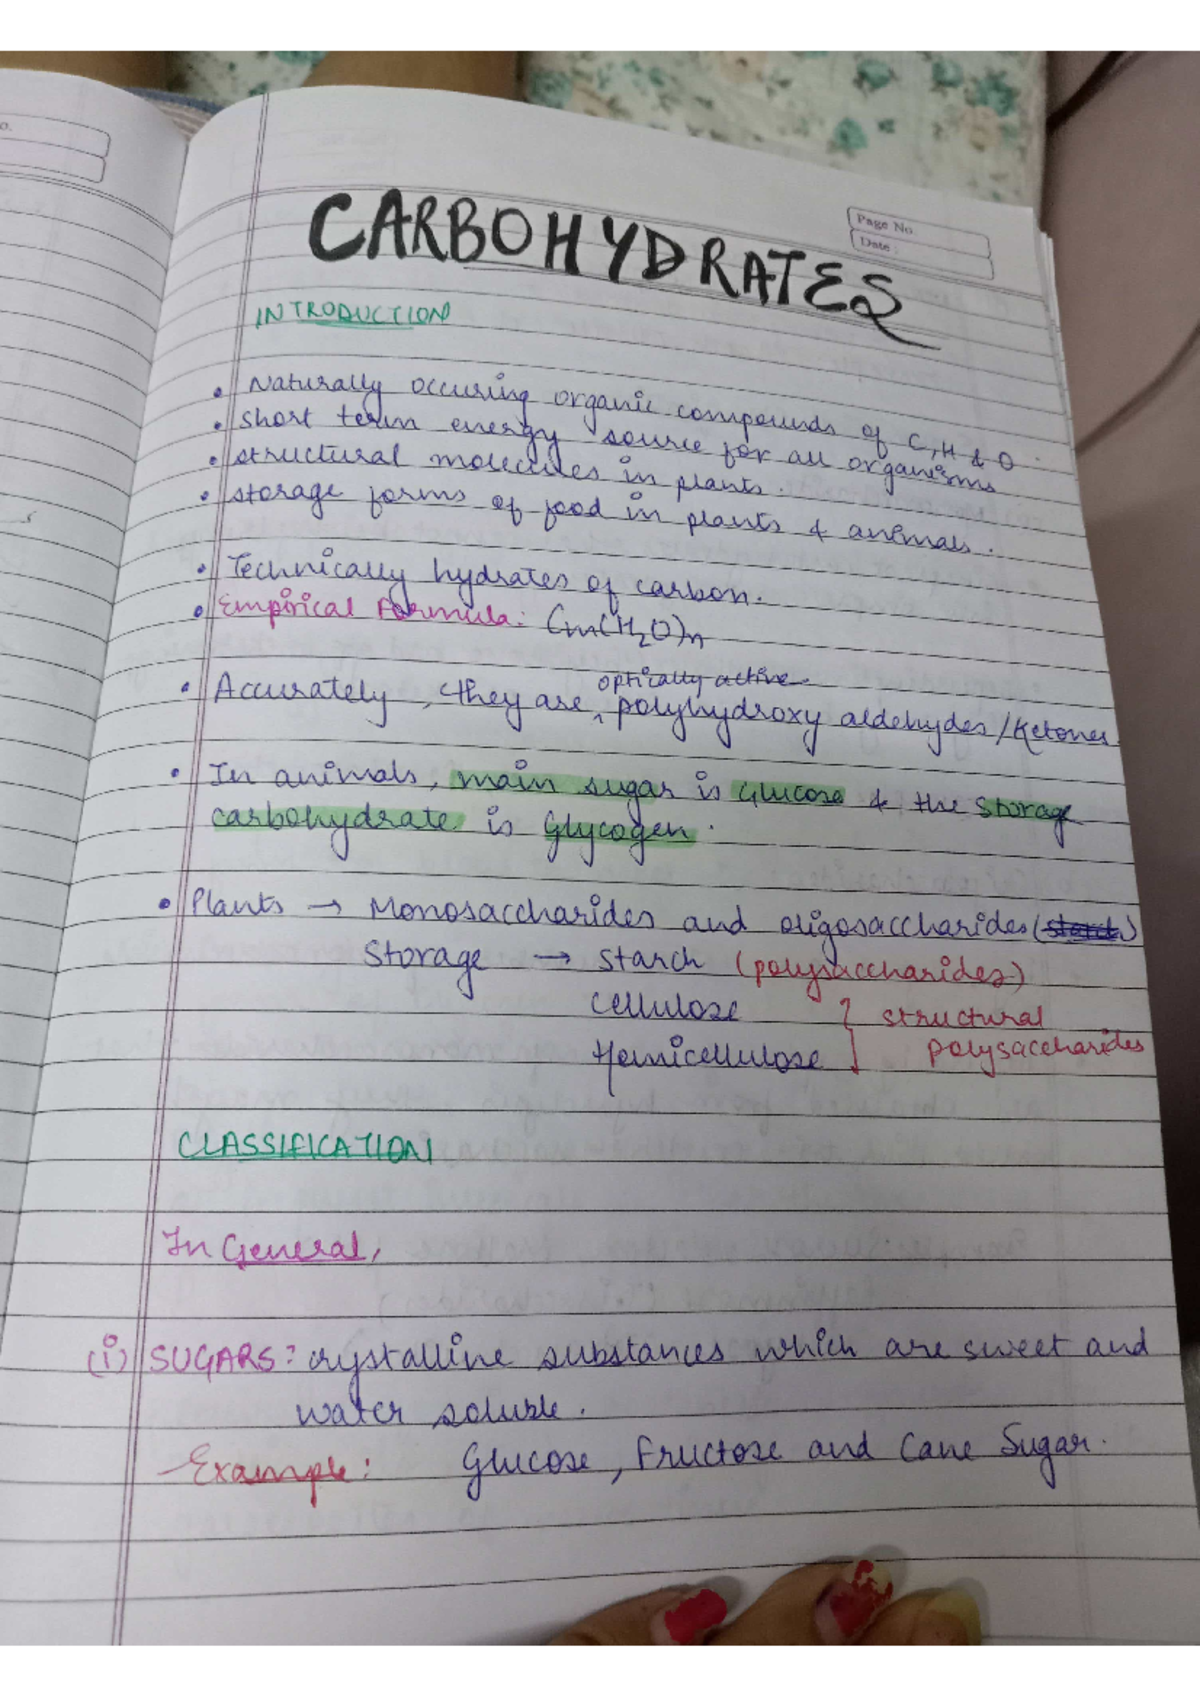 o.
Page No.
Date :
CARBOHYDRATES
INTRODUCTION
• Naturally occuring organic compounds of C, H & O.
• Short term energy source for all organisms
• structural molecules in plants.
• storage forms of food in plants & animals.
• Technically hydrates of carbon.
• Empirical Formula: Cm(H2O)n
optically active
• Accurately, they are ^ polyhydroxy aldehydes/Ketones
• In animals, main sugar is Glucose & the storage
carbohydrate is Glycogen.
• Plants → Monosaccharides and oligosaccharides ( )
Storage → starch (polysaccharides)
cellulose } structural
Hemicellulose polysaccharides
CLASSIFICATION
In General,
(i) SUGARS: crystalline substances which are sweet and
water soluble.
Example: Glucose, Fructose and Cane Sugar.